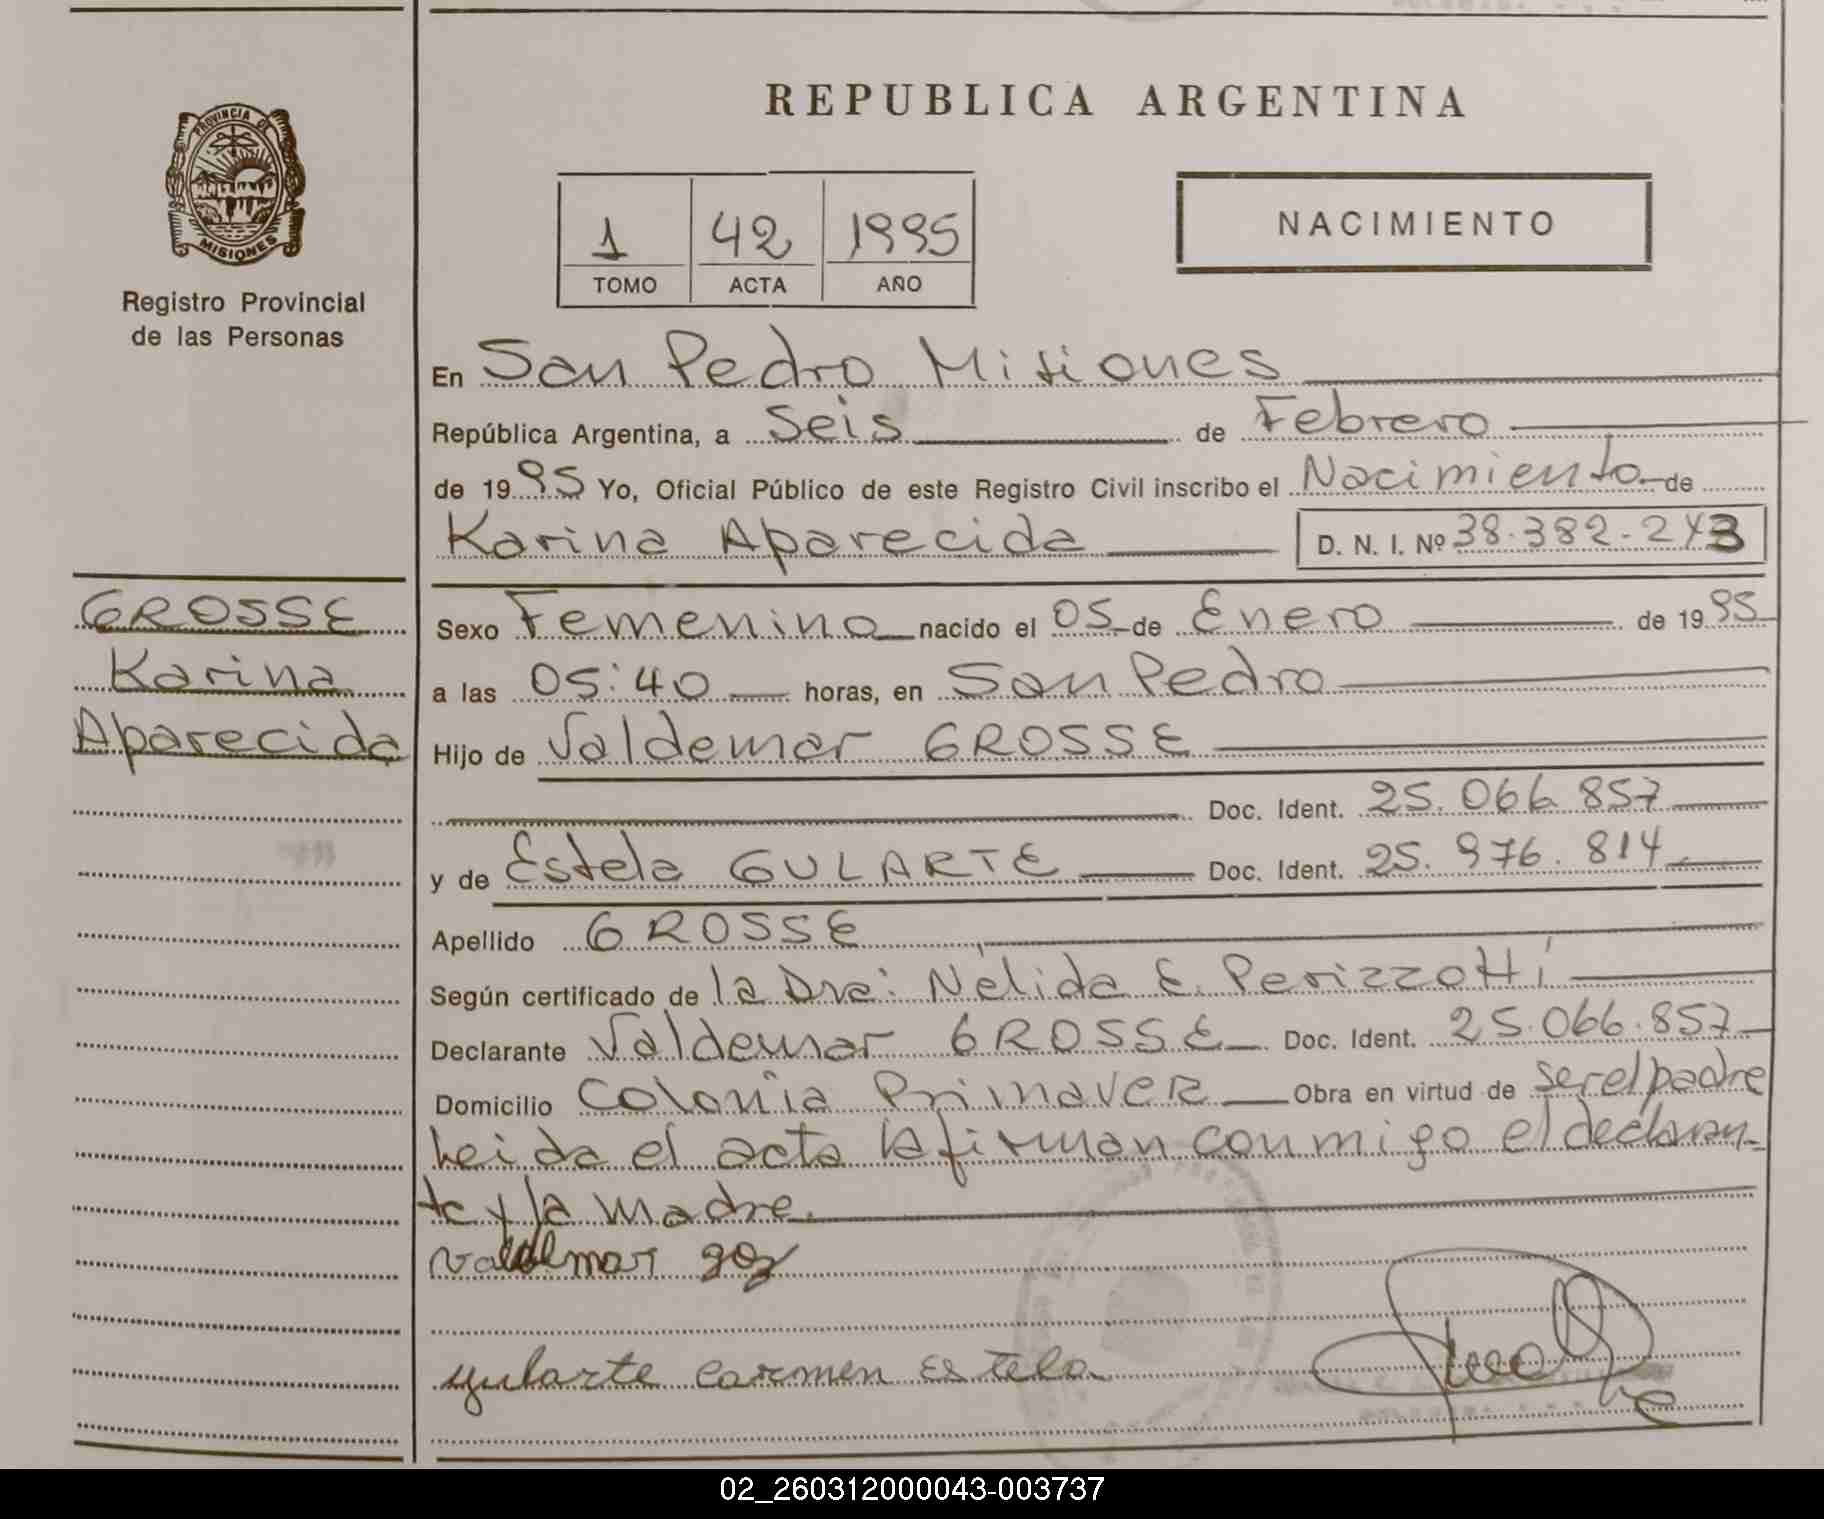 REPUBLICA ARGENTINA
PROVINCIA DE
MISIONES
Registro Provincial
de las Personas
1 42 1995
TOMO ACTA AÑO
NACIMIENTO
En San Pedro Misiones
República Argentina, a Seis de Febrero
de 1995 Yo, Oficial Público de este Registro Civil inscribo el Nacimiento de
Karina Aparecida D. N. I. Nº 38.382.243
GROSSE
Karina
Aparecida
Sexo Femenino nacido el 05 de Enero de 1995
a las 05:40 horas, en San Pedro
Hijo de Valdemar GROSSE
Doc. Ident. 25.066.857
y de Estela GULARTE Doc. Ident. 25.976.814
Apellido GROSSE
Según certificado de la Dra: Nélida E. Perizzotti
Declarante Valdemar GROSSE Doc. Ident. 25.066.857
Domicilio Colonia Primavera Obra en virtud de ser el padre
Leida el acta la firman conmigo el declaran-
te y la madre.
Valdemar
gularte carmen Estela
02_260312000043-003737